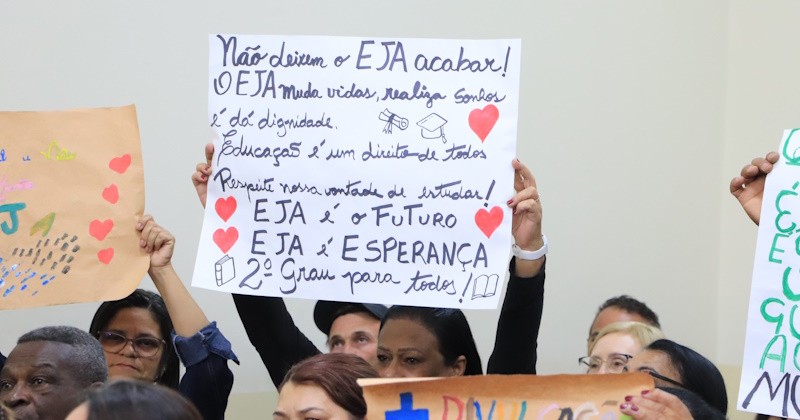 Não deixem o EJA acabar!
O EJA muda vidas, realiza sonhos
é dá dignidade.
Educação é um direito de todos
Respeite nossa vontade de estudar!
EJA é o FUTURO
EJA é ESPERANÇA
2º Grau para todos!
DIVULGAÇÃO